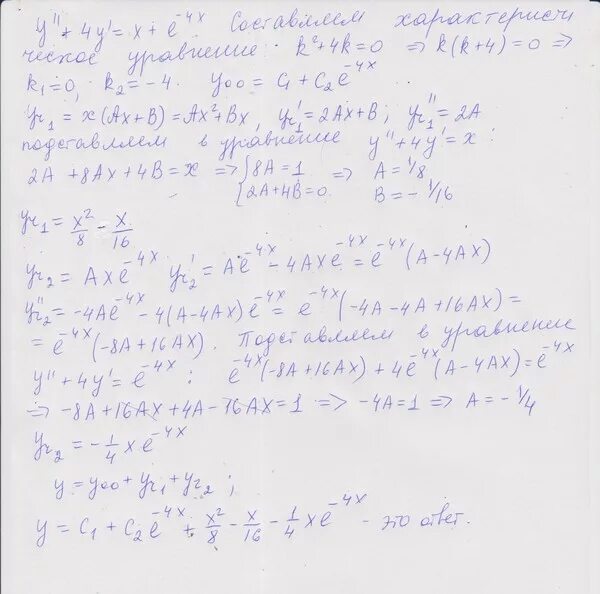 y''+4y'=x+e^{-4x} Составляем характеристи
ческое уравнение: k²+4k=0 ⇒ k(k+4)=0 ⇒
k₁=0, k₂=-4. y₀₀=C₁+C₂e^{-4x}
yг₁=x(Ax+B)=Ax²+Bx, yг₁'=2Ax+B; yг₁''=2A
подставляем в уравнение y''+4y'=x:
2A+8Ax+4B=x ⇒ {8A=1 2A+4B=0. ⇒ A=1/8 B=-1/16
yг₁=x²/8-x/16
yг₂=Axe^{-4x} yг₂'=Ae^{-4x}-4Axe^{-4x}=e^{-4x}(A-4Ax)
yг₂''=-4Ae^{-4x}-4(A-4Ax)e^{-4x}=e^{-4x}(-4A-4A+16Ax)=
=e^{-4x}(-8A+16Ax). Подставляем в уравнение
y''+4y'=e^{-4x}: e^{-4x}(-8A+16Ax)+4e^{-4x}(A-4Ax)=e^{-4x}
⇒ -8A+16Ax+4A-16Ax=1 ⇒ -4A=1 ⇒ A=-1/4
yг₂=-1/4xe^{-4x}
y=y₀₀+yг₁+yг₂;
y=C₁+C₂e^{-4x}+x²/8-x/16-1/4xe^{-4x} - это ответ.